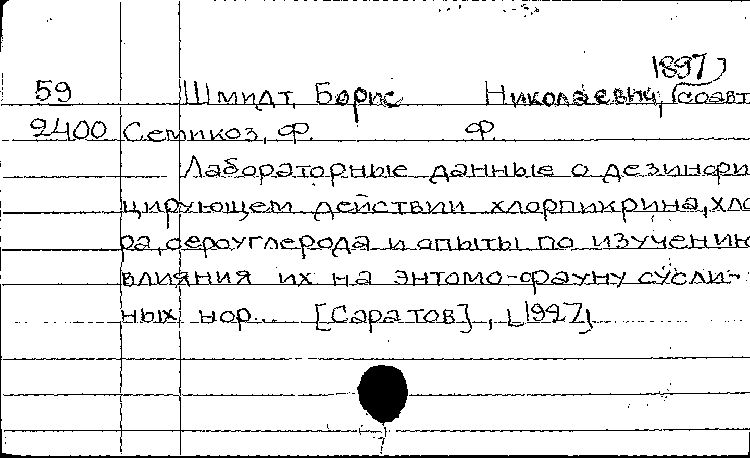 1897
59 Шмидт, Борис Николаевич, [соавт
2400 Семикоз, Ф. Ф.
Лабораторные данные о дезинфи
цирующем действии хлорпикрина, хло
ра, сероуглерода и опыты по изучению
влияния их на энтомо-фауну сусли-
ных нор... [Саратов], [1927]